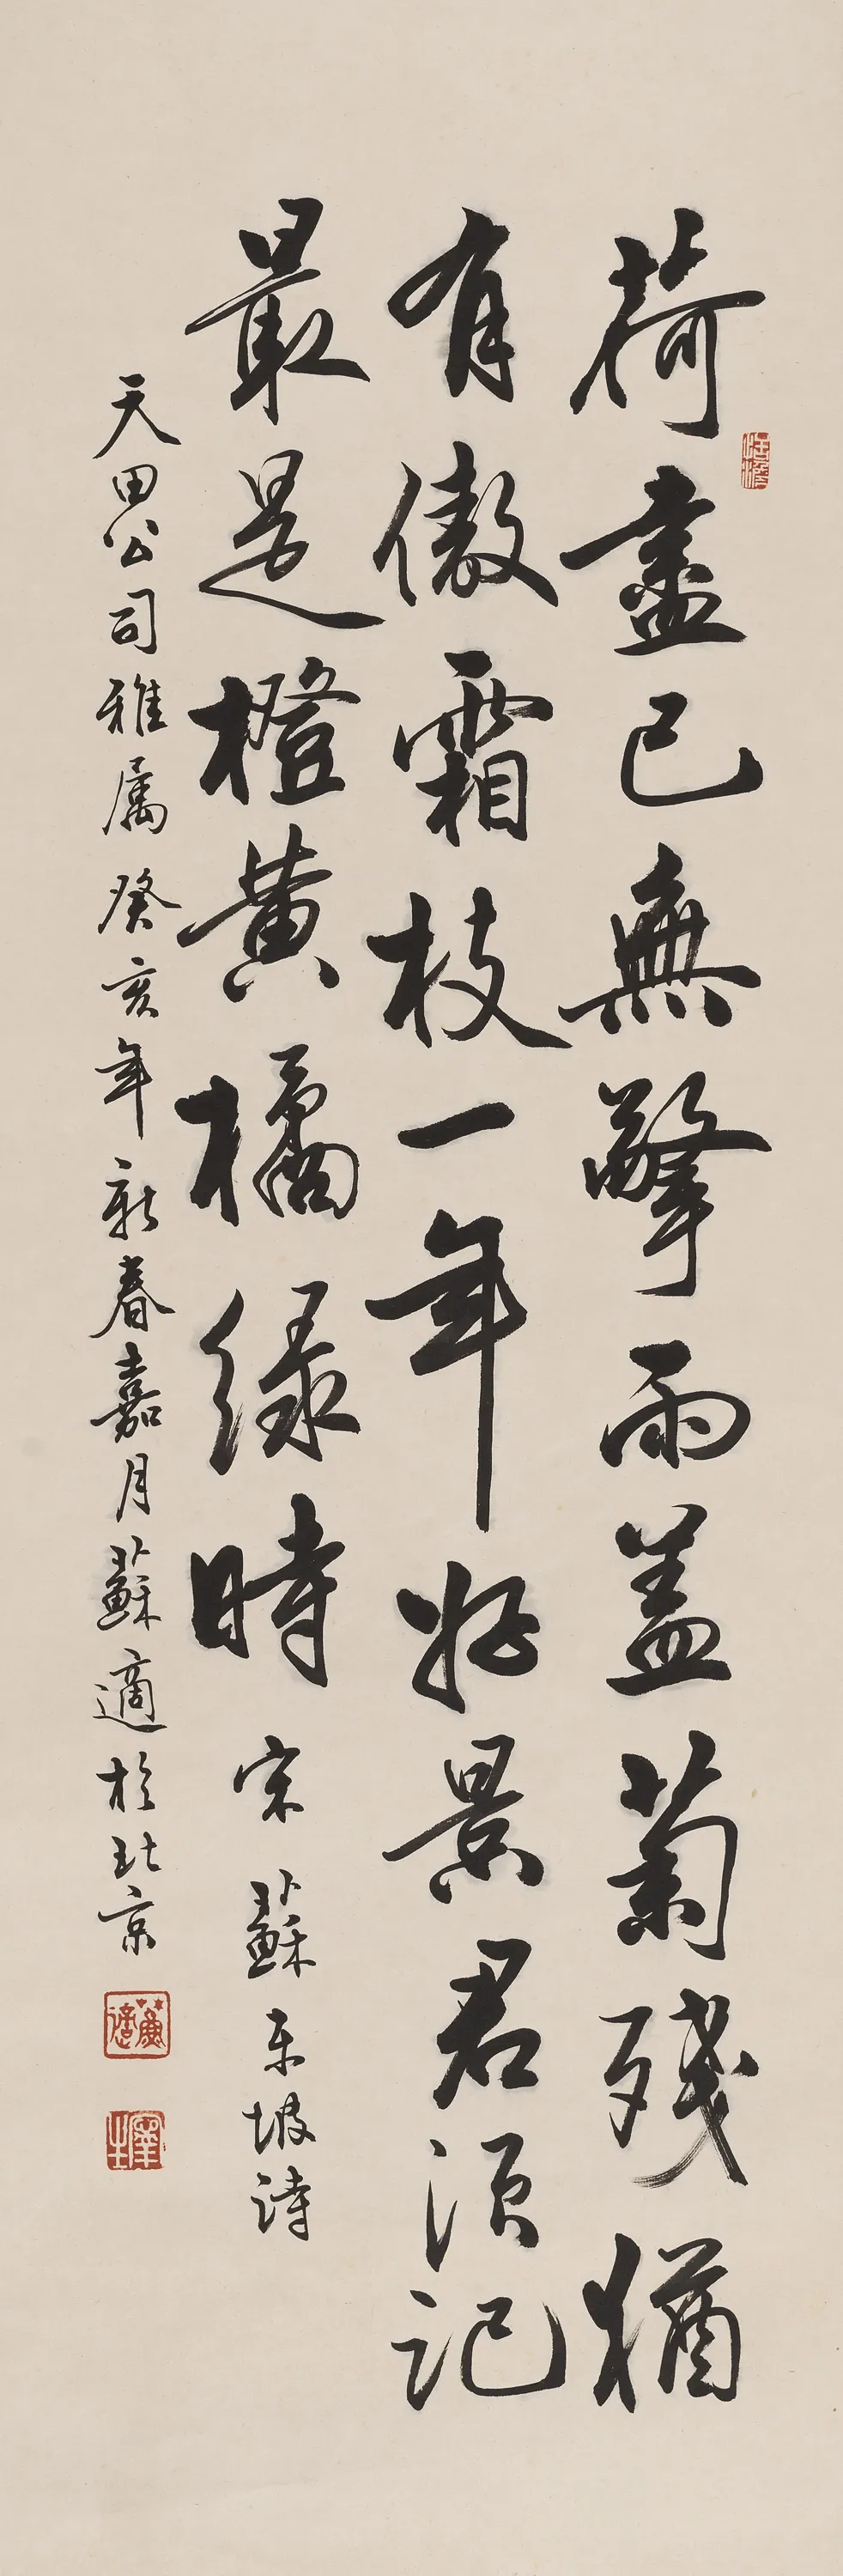 荷盡已無擎雨蓋菊殘猶
有傲霜枝一年好景君須記
最是橙黃橘緑時 宋 蘇東坡詩
天田公司雅属癸亥年新春嘉月蘇適於北京
蘇適